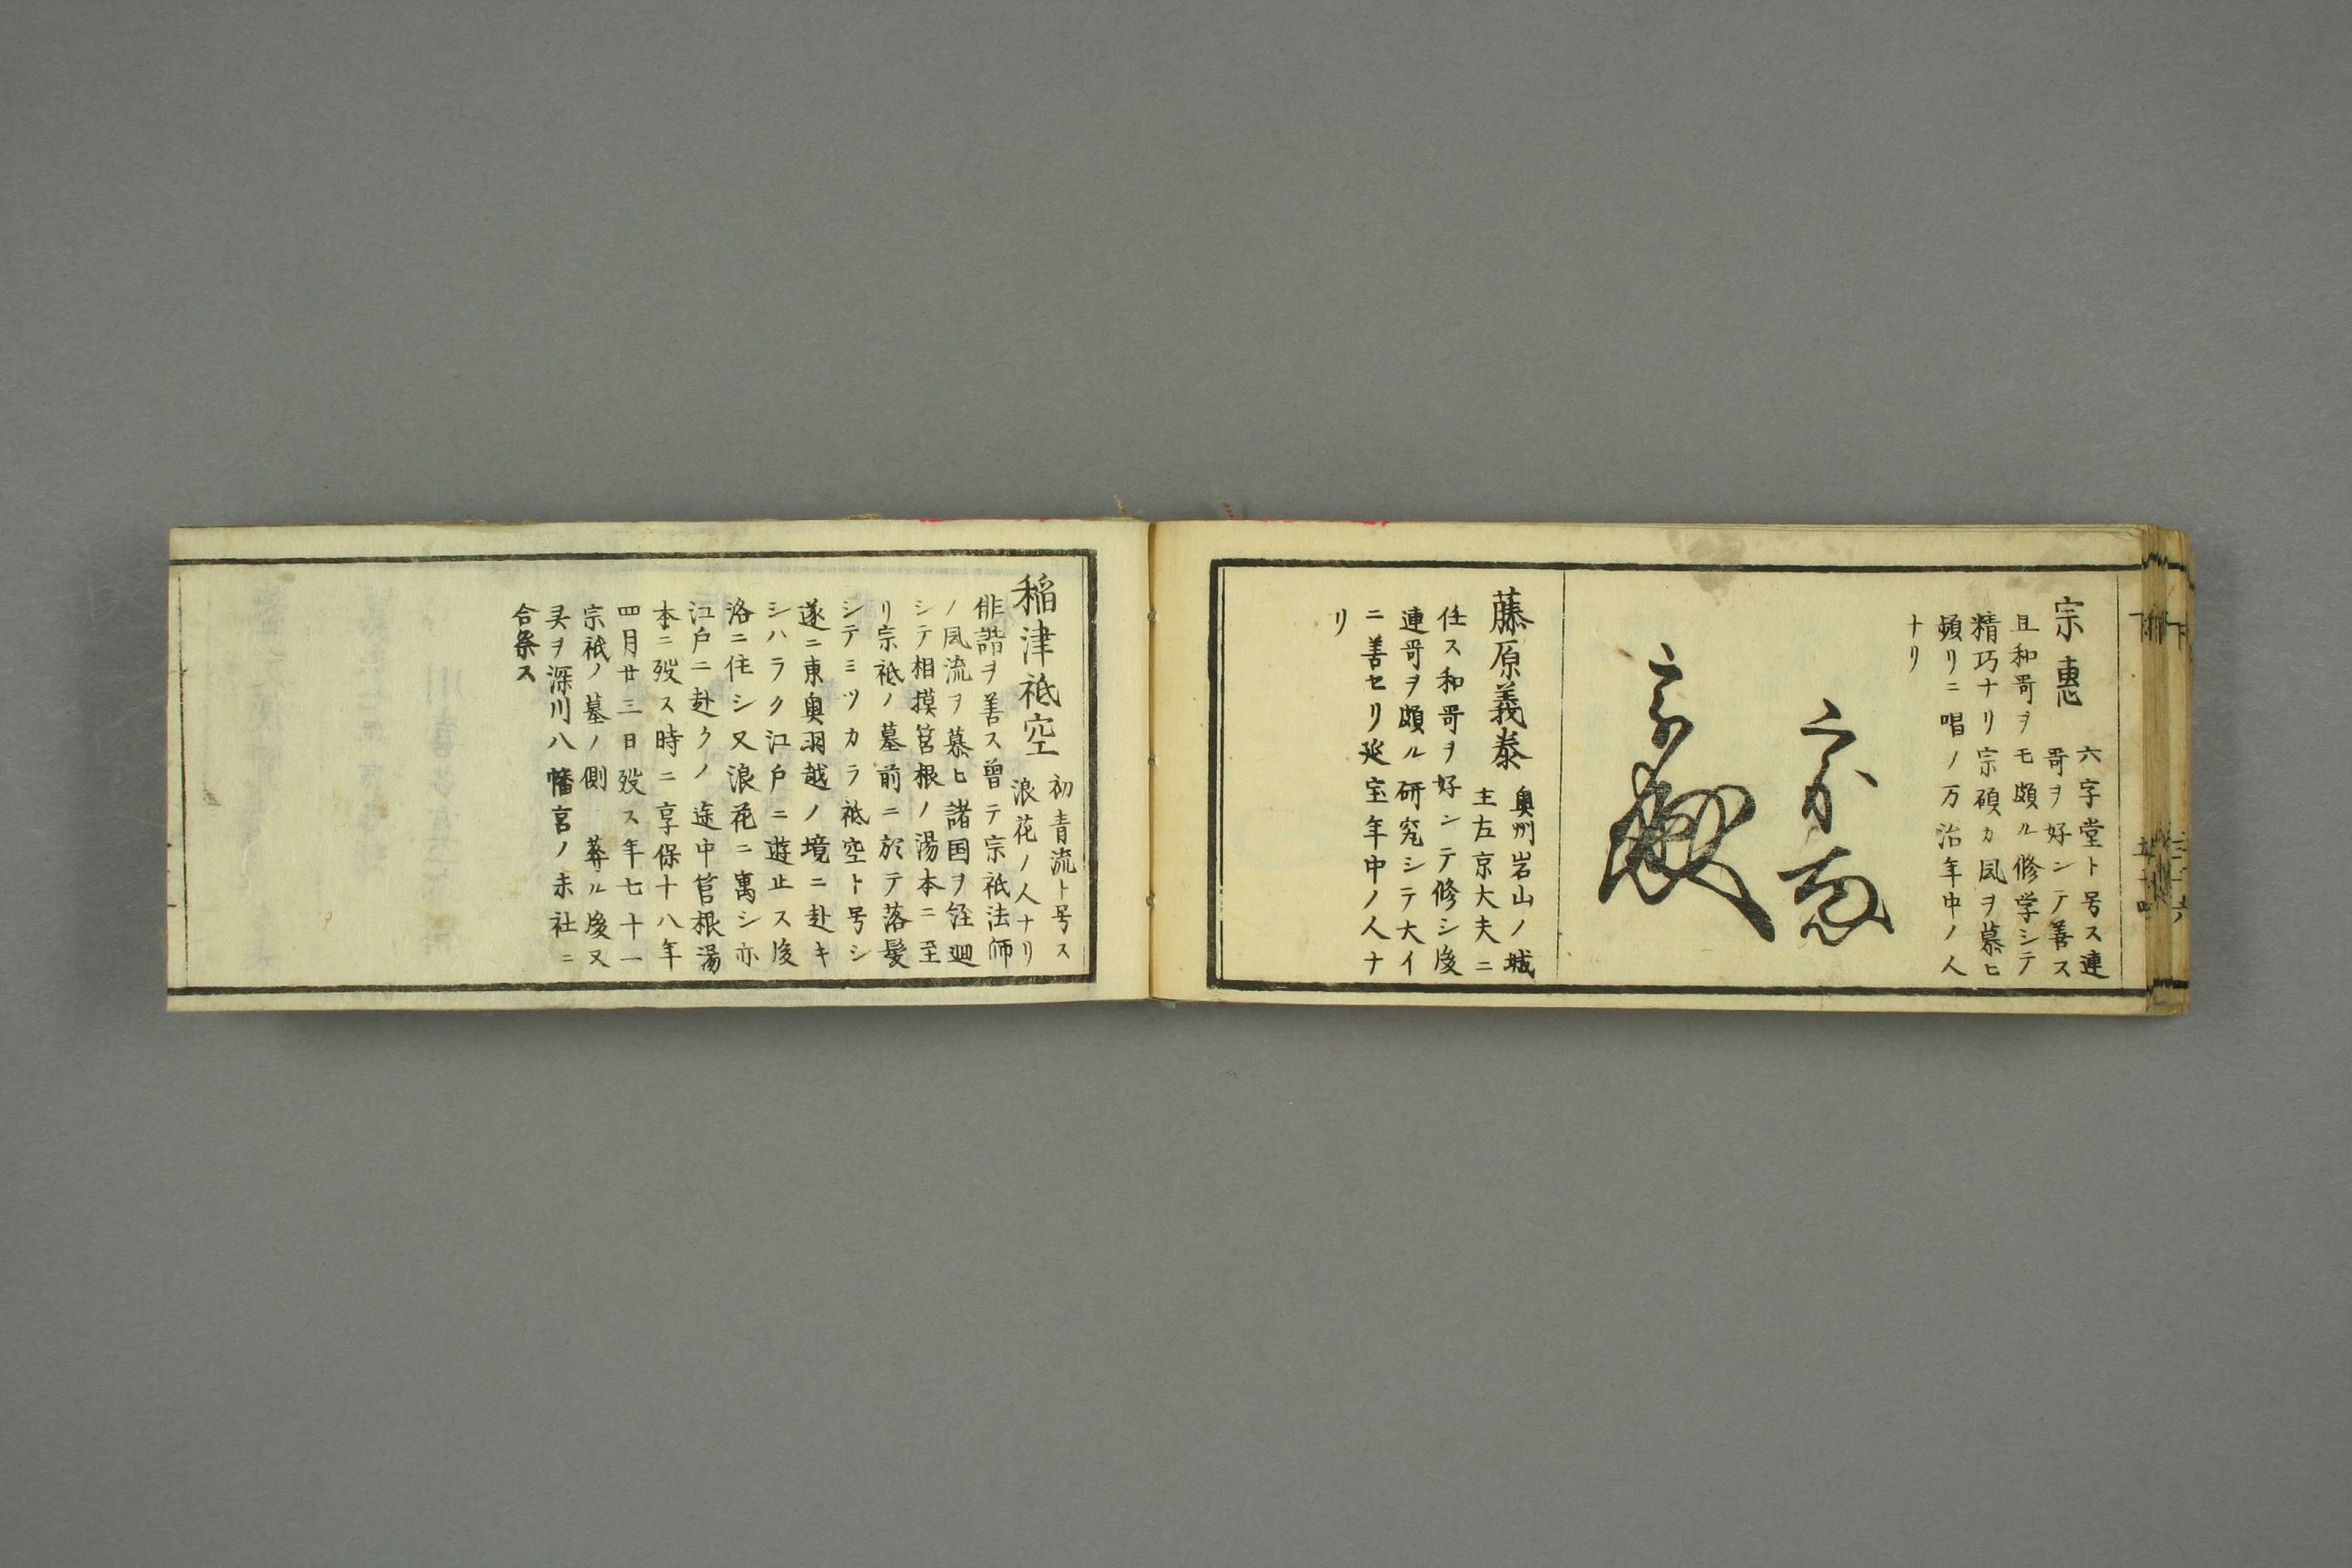 宗惠
六字堂ト号ス連
哥ヲ好シテ善ス
且和哥ヲモ頗ル修学シテ
精巧ナリ宗碩カ風ヲ慕ヒ
頻リニ唱ノ万治年中ノ人
ナリ
藤原義泰
奥州岩山ノ城
主左京大夫ニ
任ス和哥ヲ好シテ修シ後
連哥ヲ頗ル研究シテ大イ
ニ善セリ延宝年中ノ人ナ
リ
稲津祇空
初青流ト号ス
浪花ノ人ナリ
俳諧ヲ善ス曽テ宗祇法師
ノ風流ヲ慕ヒ諸国ヲ経廻
シテ相摸筥根ノ湯本ニ至
リ宗祇ノ墓前ニ於テ落髪
シテミツカラ祇空ト号シ
遂ニ東奥羽越ノ境ニ赴キ
シハラク江戸ニ遊止ス後
洛ニ住シ又浪花ニ寓シ亦
江戸ニ赴クノ途中筥根湯
本ニ歿ス時ニ享保十八年
四月廿三日歿ス年七十一
宗祇ノ墓ノ側 葬ル後又
灵ヲ深川八幡宮ノ末社ニ
合祭ス